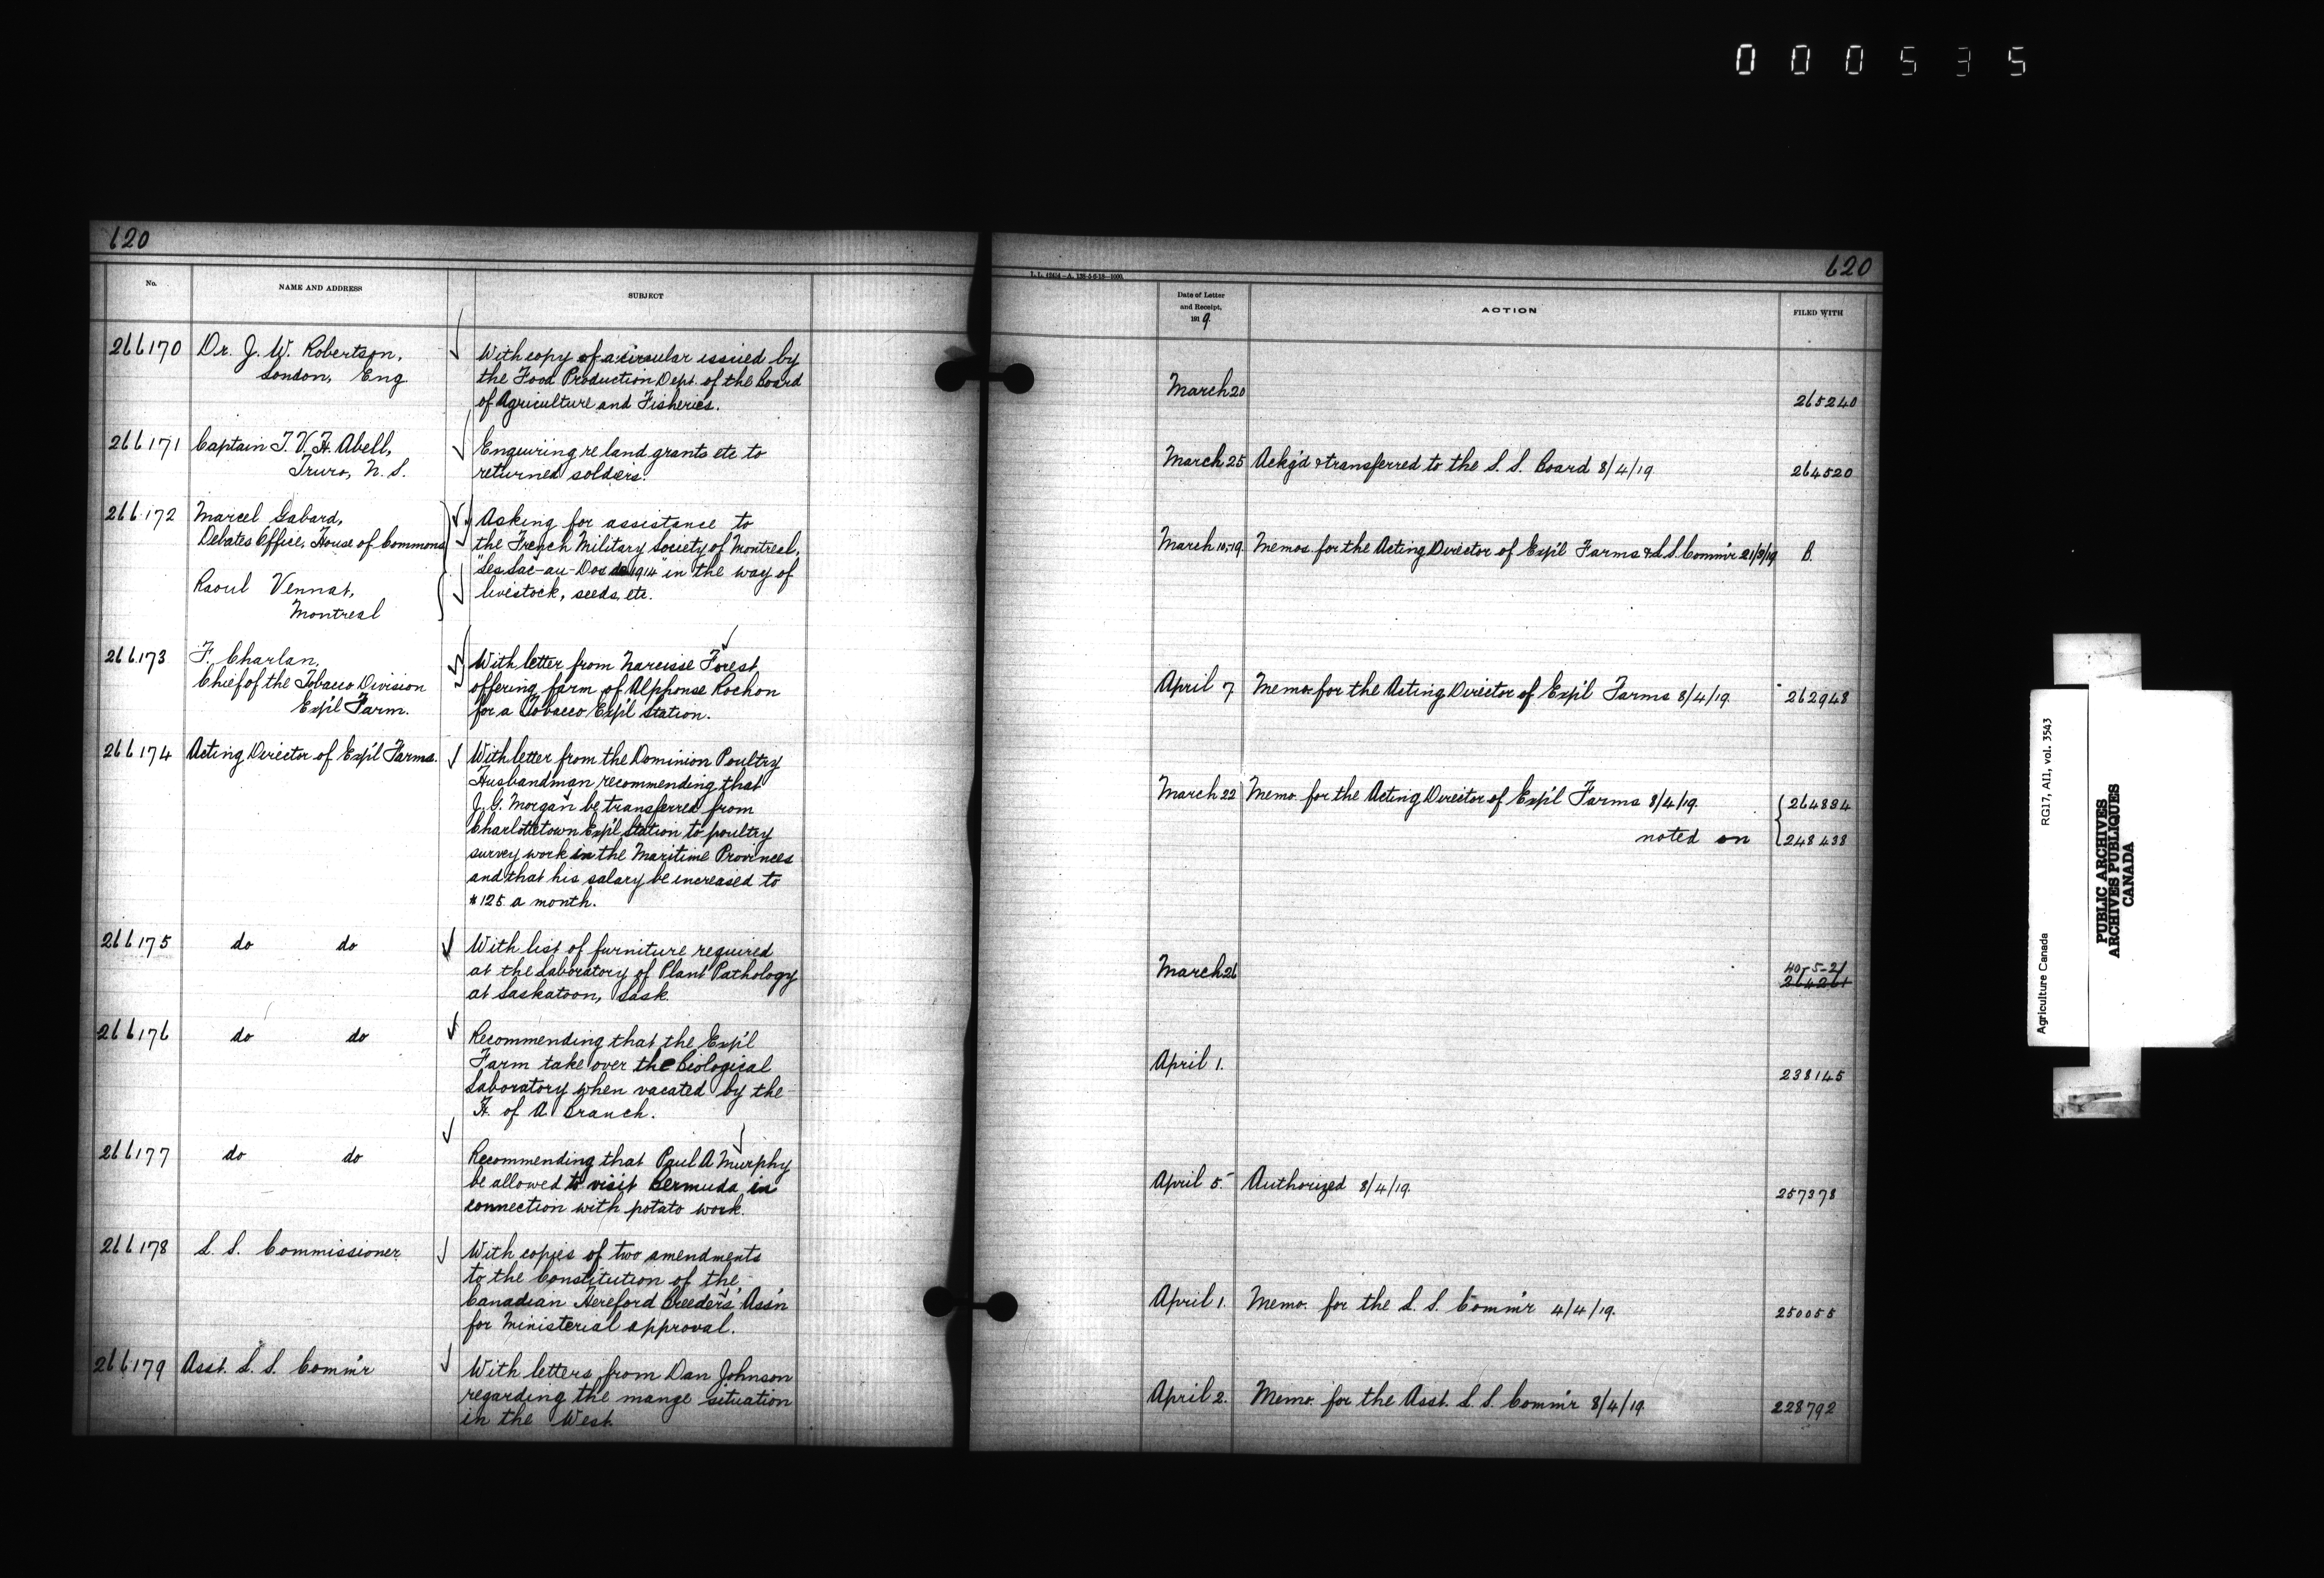 000535
620
No.
NAME AND ADDRESS
SUBJECT
266170
Dr. J. W. Robertson,
London, Eng
With copy of a circular issued by
the Food Production Dept. of the Board
of Agriculture and Fisheries.
266171
Captain T. V. H. Abell,
Truro, N. S.
Enquiring re land grants etc to
returned soldiers.
266172
Marcel Gabard,
Debates Office, House of Commons
Raoul Vennat,
Montreal
Asking for assistance to
the French Military Society of Montreal,
"Les Sac-au-Dos de 1914" in the way of
livestock, seeds, etc.
266173
F. Charlan,
Chief of the Tobacco Division
Exp'l Farm.
With letter from Narcisse Forest
offering farm of Alphonse Rochon
for a Tobacco Exp'l Station.
266174
Acting Director of Exp'l Farms.
With letter from the Dominion Poultry
Husbandman recommending that
J. G. Morgan be transferred from
Charlottetown Exp'l Station to poultry
survey work in the Maritime Provinces
and that his salary be increased to
$125 a month.
266175
do do
With list of furniture required
at the Laboratory of Plant Pathology
at Saskatoon, Sask.
266176
do do
Recommending that the Exp'l
Farm take over the Biological
Laboratory when vacated by the
H. of A. Branch.
266177
do do
Recommending that Paul A Murphy
be allowed to visit Bermuda in
connection with potato work.
266178
L. S. Commissioner
With copies of two amendments
to the Constitution of the
Canadian Hereford Breeders' Ass'n
for Ministerial approval.
266179
Asst. L. S. Comm'r
With letters from Dan Johnson
regarding the mange situation
in the West.
620
Date of Letter
and Receipt,
1919
ACTION
FILED WITH
March 20
265240
March 25 Ackg'd & transferred to the S. S. Board 8/4/19.
264520
March 10, 19 Memos for the Acting Director of Exp'l Farms & L.S. Comm'r 21/3/19
B.
April 7 Memo. for the Acting Director of Exp'l Farms 8/4/19.
262948
March 22 Memo. for the Acting Director of Exp'l Farms 8/4/19.
264884
noted on
248438
March 26
40-5-21
264261
April 1.
238145
April 5. Authorized 8/4/19.
257378
April 1. Memo. for the L. S. Comm'r 4/4/19.
250055
April 2. Memo. for the Asst. L. S. Comm'r 8/4/19.
228792
Agriculture Canada
RG17, AII, vol. 3543
PUBLIC ARCHIVES
ARCHIVES PUBLIQUES
CANADA